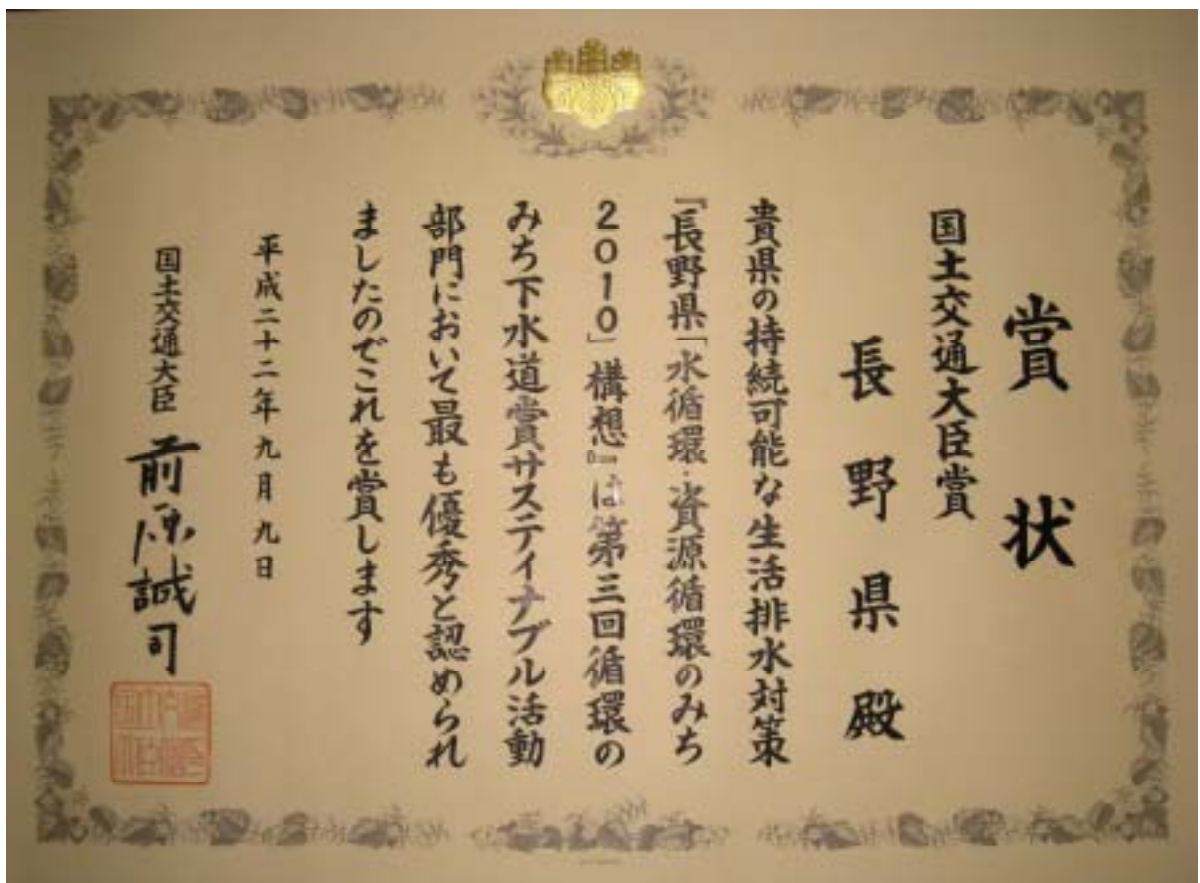 賞状
国土交通大臣賞
長野県殿
貴県の持続可能な生活排水対策
『長野県「水循環・資源循環のみち
2010」構想』は第三回循環の
みち下水道賞サスティナブル活動
部門において最も優秀と認められ
ましたのでこれを賞します
平成二十二年九月九日
国土交通大臣 前原誠司